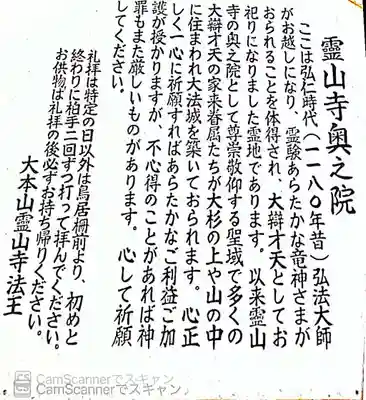 霊山寺奥之院
ここは弘仁時代（一一八〇年昔）弘法大師
がお越しになり、霊験あらたかな竜神さまが
おられることを体得され、大辯才天としてお
祀りになりました霊地であります。以来霊山
寺の奥之院として尊崇敬仰する聖域で多くの
大辯才天の家来眷属たちが大杉の上や山の中
に住まわれ大法城を築いておられます。心正
しく一心に祈願すればあらたかなご利益ご加
護が授かりますが、不心得のことがあれば神
罪もまた厳しいものがあります。心して祈願
してください。
礼拝は特定の日以外は鳥居柵前より、初めと
終わりに拍手二回ずつ打って拝んでください。
お供物は礼拝の後必ずお持ち帰りください。
大本山霊山寺法王
CS CamScannerでスキャン
CS CamScannerでスキャン